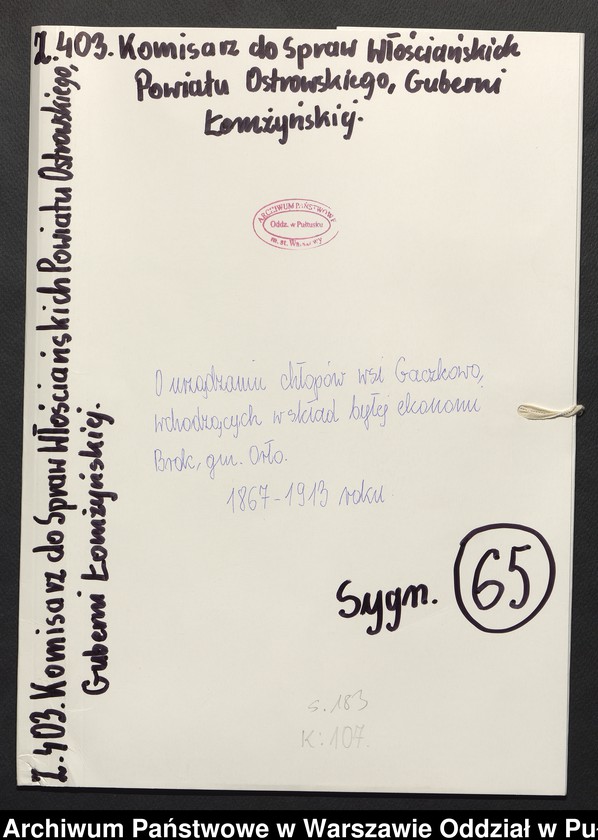 Z.403. Komisarz do Spraw Włościańskich
Powiatu Ostrowskiego, Guberni
Łomżyńskiej.
Z.403. Komisarz do Spraw Włościańskich Powiatu Ostrowskiego,
Guberni Łomżyńskiej.
ARCHIWUM PAŃSTWOWE
Oddz. w Pułtusku
m. st. Warszawy
O urządzaniu chłopów wsi Gaczkowo,
wchodzących w skład byłej ekonomi
Brok, gm. Orło.
1867-1913 roku.
Sygn. 65
s. 183
K: 107.
Archiwum Państwowe w Warszawie Oddział w Pu